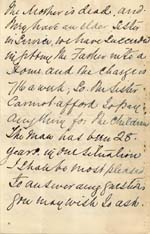 The Mother is dead, and
they have an elder Sister
in Service, we have succeeded
in putting the Father into a
Home and the Charge is
7/6 a week, So the Sister
Cannot afford to pay
anything for the Children
The Man has been 25
years in our Situation
I shall be most pleased
to answer any questions
you may wish to ask.